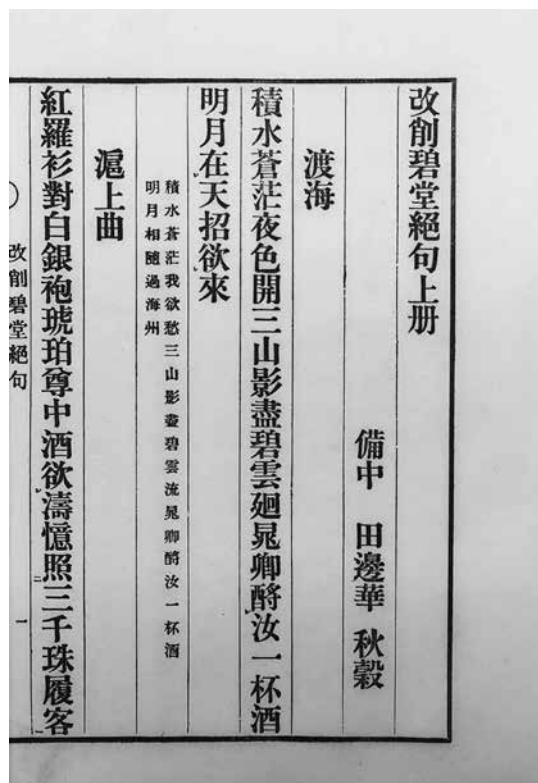 改削碧堂絕句上册
備中　田邊華　秋穀
渡海
積水蒼茫夜色開三山影盡碧雲廻晁卿酹汝一杯酒
明月在天招欲來
積水蒼茫我欲愁三山影盡碧雲流晁卿酹汝一杯酒
明月相隨過海州
滬上曲
紅羅衫對白銀袍琥珀尊中酒欲濤憶照三千珠履客
改削碧堂絕句
一